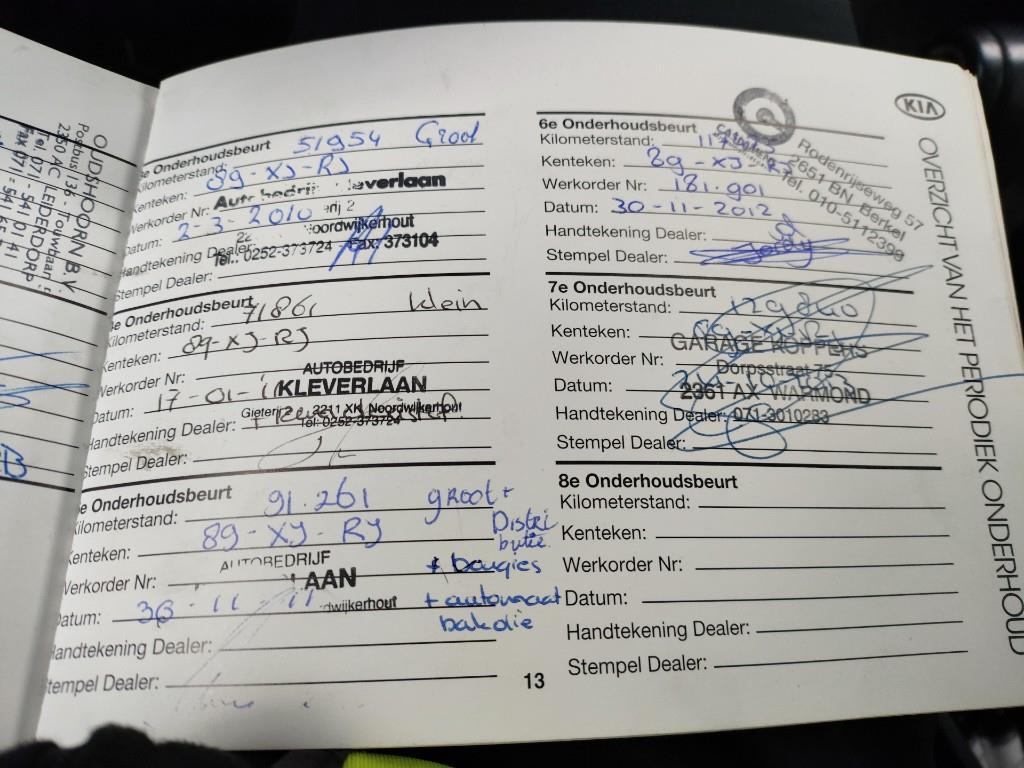 OUDSHOORN B.V.
Postbus 136 - Touwbaan
2350 AC LEIDERDORP
Tel. 071 - 541 01 41
Fax 071 - 541
Onderhoudsbeurt 51954 Groot
Kilometerstand:
Kenteken: 89-XJ-RJ
Werkorder Nr: Autobedrijf Kleverlaan
Datum: 2-3-2010
Noordwijkerhout
Handtekening Dealer:
Tel.: 0252-373724 Fax: 373104
Stempel Dealer:
Onderhoudsbeurt
Kilometerstand: 71861 klein
Kenteken: 89-XJ-RJ
Werkorder Nr: AUTOBEDRIJF
KLEVERLAAN
Datum: 17-01-11
2211 XK Noordwijkerhout
Handtekening Dealer: Tel: 0252-373724
Stempel Dealer:
e Onderhoudsbeurt
Kilometerstand: 91.261 groot +
Distri
butie
Kenteken: 89-XJ-RJ
AUTOBEDRIJF
Werkorder Nr: LAAN + bougies
Datum: 30-11-11 dwijkerhout + automaat
bakolie
Handtekening Dealer:
Stempel Dealer:
13
KIA
OVERZICHT VAN HET PERIODIEK ONDERHOUD
6e Onderhoudsbeurt
Kilometerstand:
Kenteken: 89-XJ-RJ
Rodenrijseweg 57
2651 BN Berkel
Tel. 010-5112399
Werkorder Nr: 181.901
Datum: 30-11-2012
Handtekening Dealer:
Stempel Dealer:
7e Onderhoudsbeurt
Kilometerstand: 129840
Kenteken:
GARAGE KOPPERS
Werkorder Nr: Dorpsstraat 75
Datum: 2361 AX WARMOND
Handtekening Dealer: 071-3010283
Stempel Dealer:
8e Onderhoudsbeurt
Kilometerstand:
Kenteken:
Werkorder Nr:
Datum:
Handtekening Dealer:
Stempel Dealer: